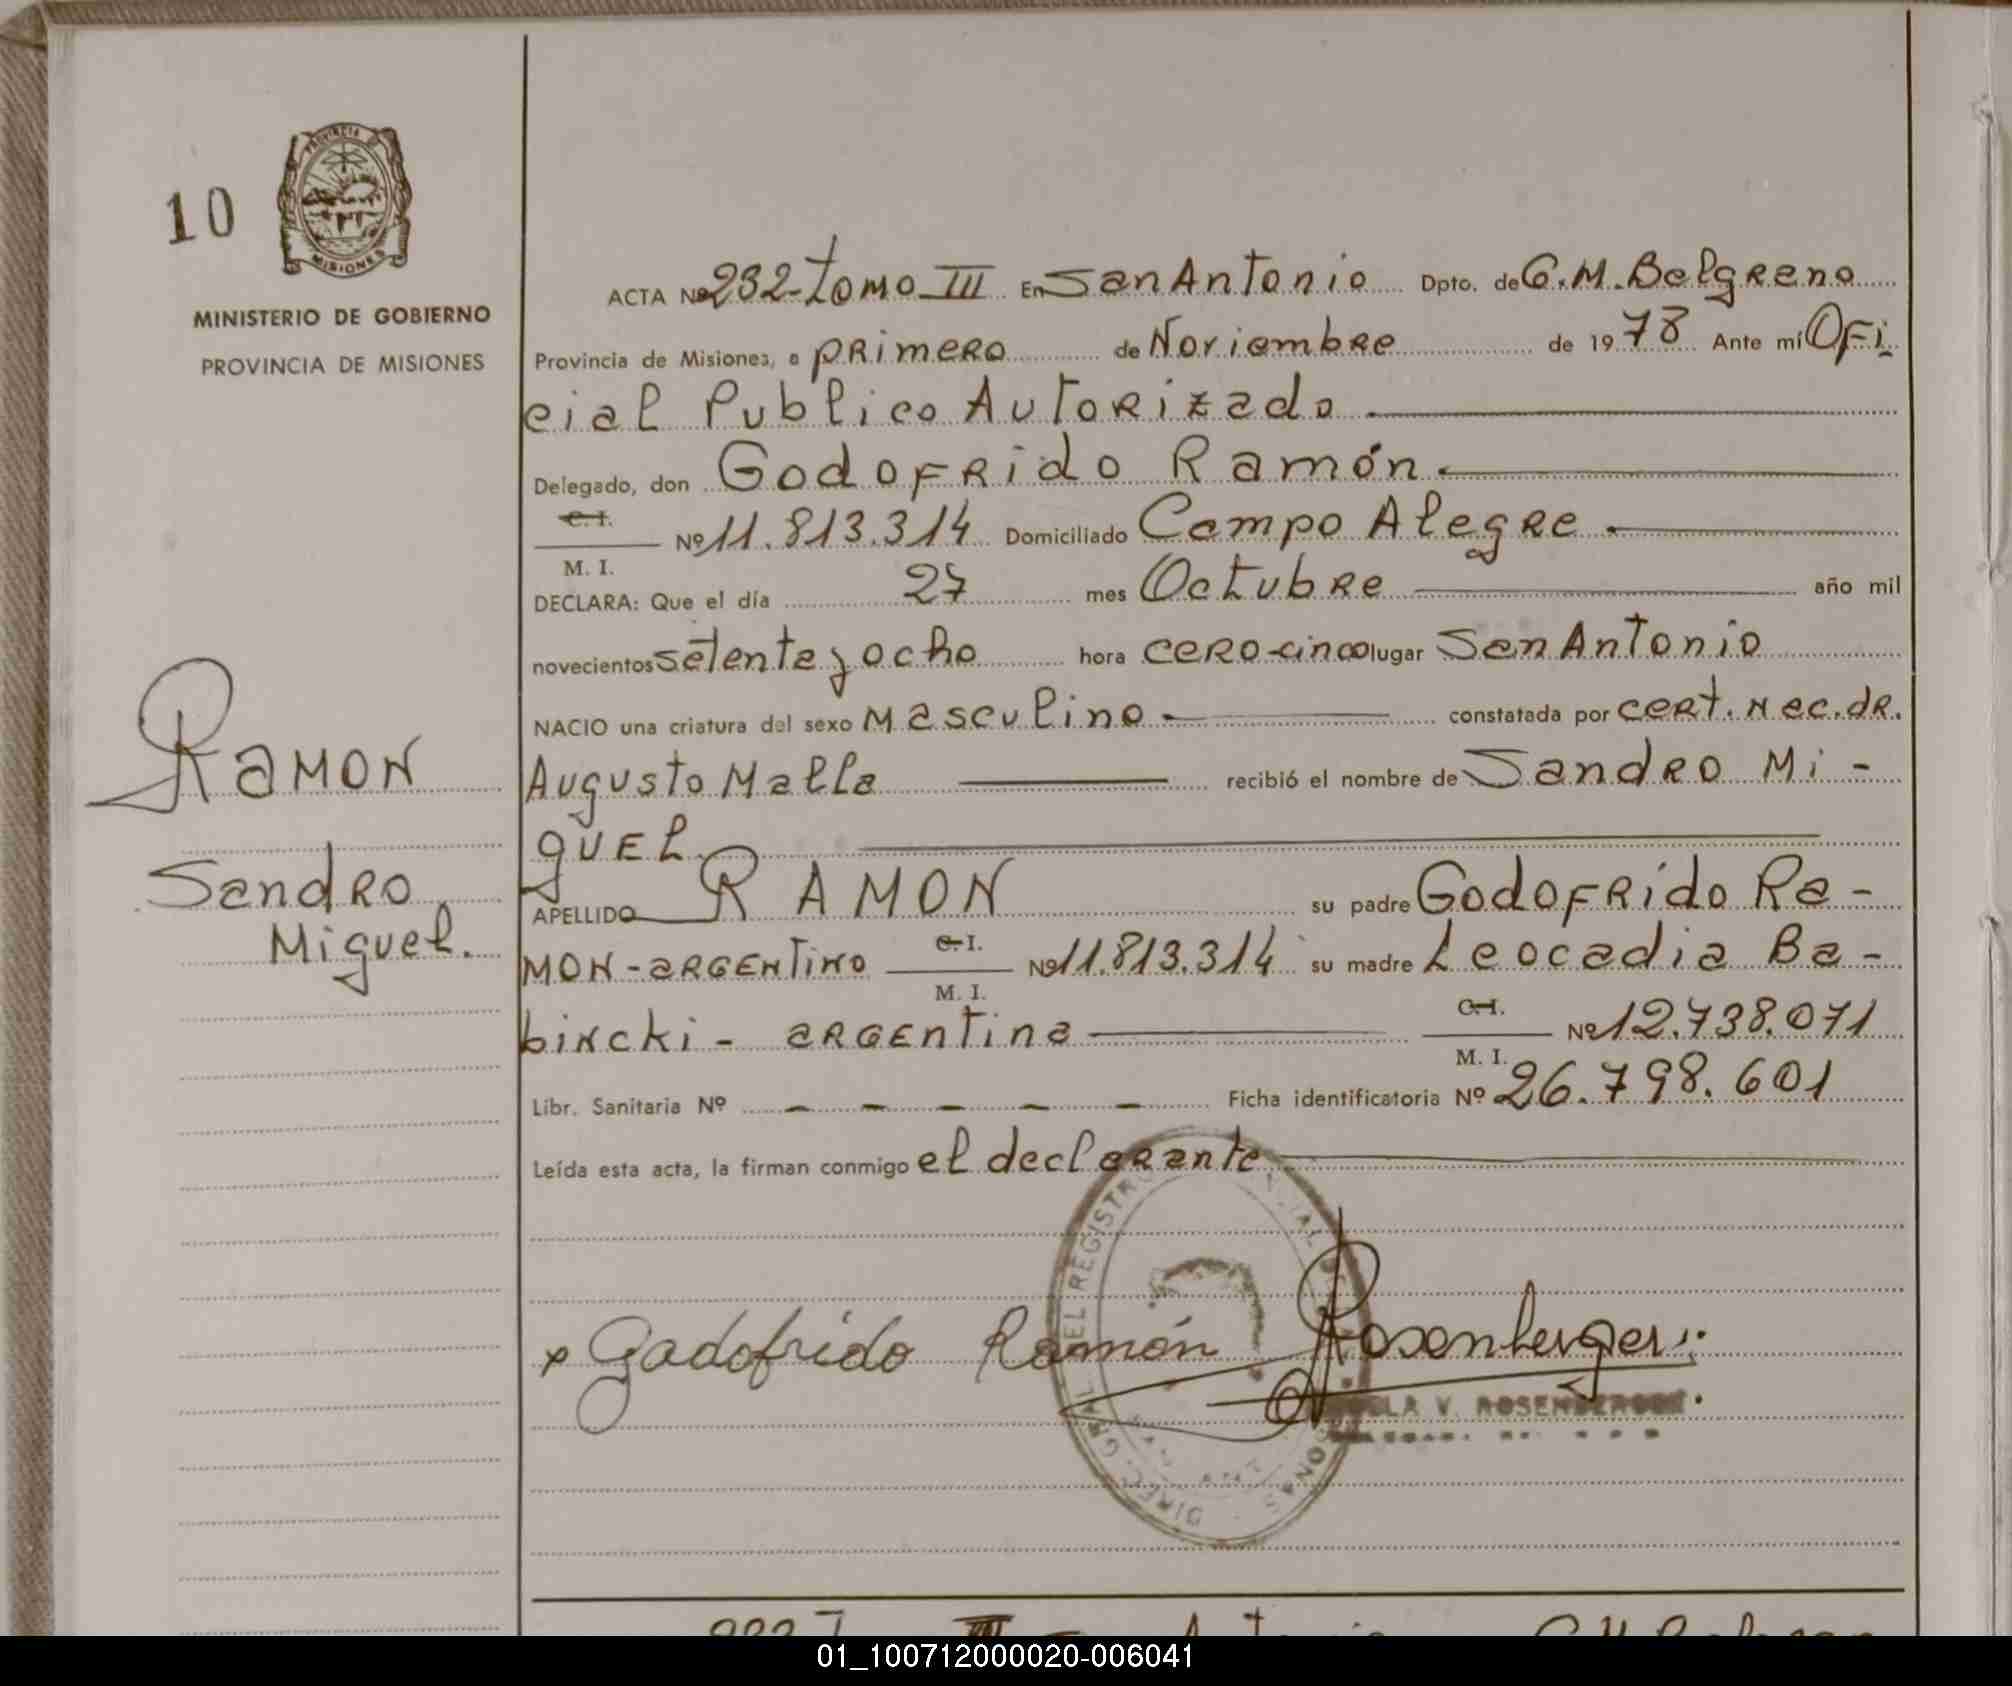 10
PROVINCIA DE
MISIONES
MINISTERIO DE GOBIERNO
PROVINCIA DE MISIONES
RAMON
Sandro
Miguel.
ACTA Nº 232-Tomo III En San Antonio Dpto. de G.M.Belgrano
Provincia de Misiones, a primero de Noviembre de 1978 Ante mí Ofi
cial Publico Autorizado
Delegado, don Godofrido Ramón.
C. I.
Nº 11.813.314 Domiciliado Campo Alegre.
M. I.
DECLARA: Que el día 27 mes Octubre año mil
novecientos setenta y ocho hora cero-cinco lugar San Antonio
NACIO una criatura del sexo Masculino constatada por cert. Nec. dr.
Augusto Malla recibió el nombre de Sandro Mi-
guel
APELLIDO RAMON su padre Godofrido Ra-
MON-argentino C. I. Nº 11.813.314 su madre Leocadia Ba-
M. I.
bincki - argentina C. I. Nº 12.738.071
M. I.
Libr. Sanitaria Nº - - - - - Ficha identificatoria Nº 26.798.601
Leída esta acta, la firman conmigo el declarante
x Godofrido Ramón Rosenberger
V. ROSENBERGER
DIREC. GRAL. DEL REGISTRO
01_100712000020-006041